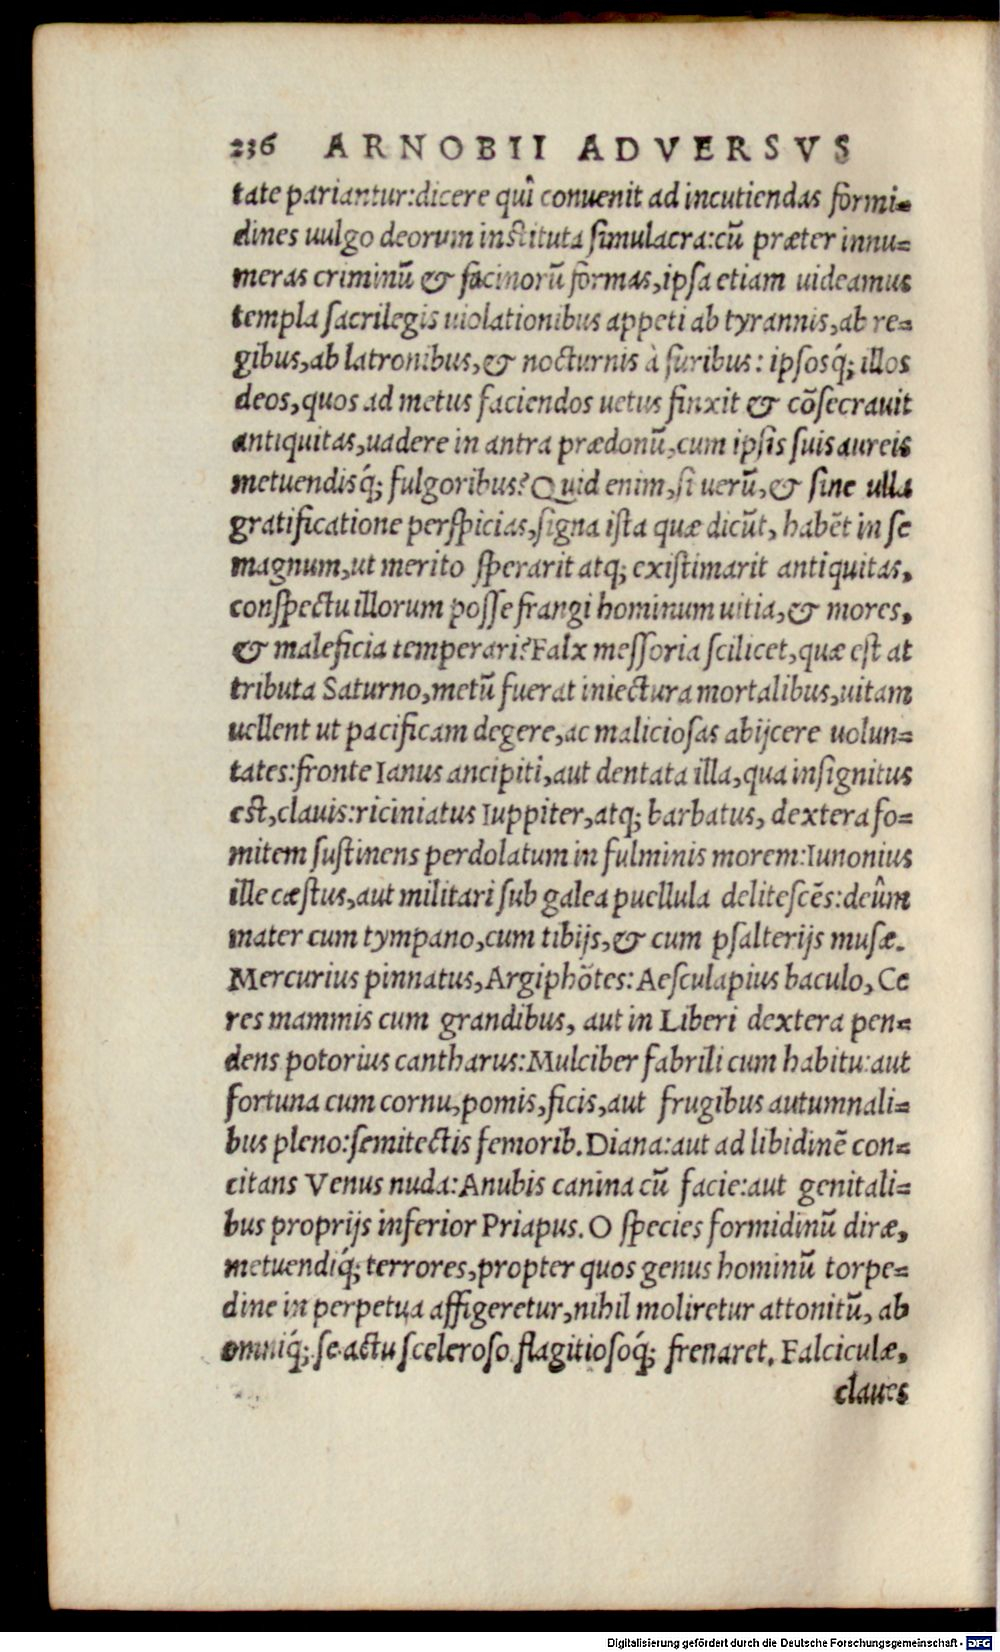 236 ARNOBII ADVERSVS
tate pariantur:dicere quî conuenit ad incutiendas formi-
dines uulgo deorum instituta simulacra:cũ præter innu-
meras criminũ & facinorũ formas,ipsa etiam uideamus
templa sacrilegis uiolationibus appeti ab tyrannis,ab re-
gibus,ab latronibus,& nocturnis à furibus: ipsosq́; illos
deos,quos ad metus faciendos uetus finxit & cõsecrauit
antiquitas,uadere in antra prædonũ,cum ipsis suis aureis
metuendisq́; fulgoribus? Quid enim,si uerũ,& sine ulla
gratificatione perspicias,signa ista quæ dicũt, habẽt in se
magnum,ut merito sperarit atq; existimarit antiquitas,
conspectu illorum posse frangi hominum uitia,& mores,
& maleficia temperari? Falx messoria scilicet,quæ est at
tributa Saturno,metũ fuerat iniectura mortalibus,uitam
uellent ut pacificam degere,ac maliciosas abijcere uolun-
tates:fronte Ianus ancipiti,aut dentata illa,qua insignitus
est,clauis:riciniatus Iuppiter,atq; barbatus, dextera fo-
mitem sustinens perdolatum in fulminis morem:Iunonius
ille cæstus,aut militari sub galea puellula delitescẽs:deûm
mater cum tympano,cum tibijs,& cum psalterijs musæ.
Mercurius pinnatus,Argiphõtes: Aesculapius baculo, Ce
res mammis cum grandibus, aut in Liberi dextera pen-
dens potorius cantharus:Mulciber fabrili cum habitu:aut
fortuna cum cornu,pomis,ficis,aut frugibus autumnali-
bus pleno:semitectis femorib. Diana:aut ad libidinẽ con-
citans Venus nuda:Anubis canina cũ facie:aut genitali-
bus proprijs inferior Priapus. O species formidinũ diræ,
metuendiq́; terrores,propter quos genus hominũ torpe-
dine in perpetua affigeretur,nihil moliretur attonitũ, ab
omniq́; se actu sceleroso flagitiosoq́; frenaret. Falciculæ,
claues
Digitalisierung gefördert durch die Deutsche Forschungsgemeinschaft - DFG